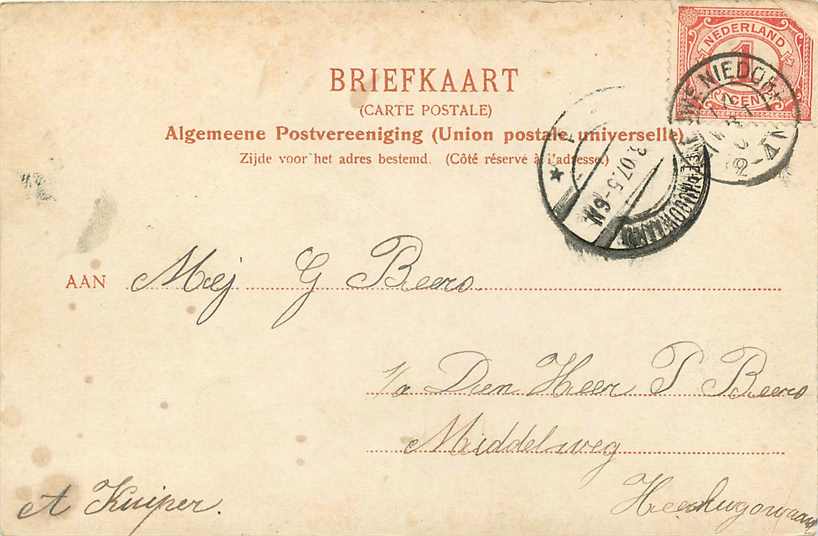 NEDERLAND
1
CENT
BRIEFKAART
(CARTE POSTALE)
Algemeene Postvereeniging (Union postale universelle)
Zijde voor het adres bestemd. (Côté réservé à l'adresse.)
07.5-6N
AAN Mej G Beers
Den Heer P Beers
Middelweg
A Kuiper.
Heerhugowaard